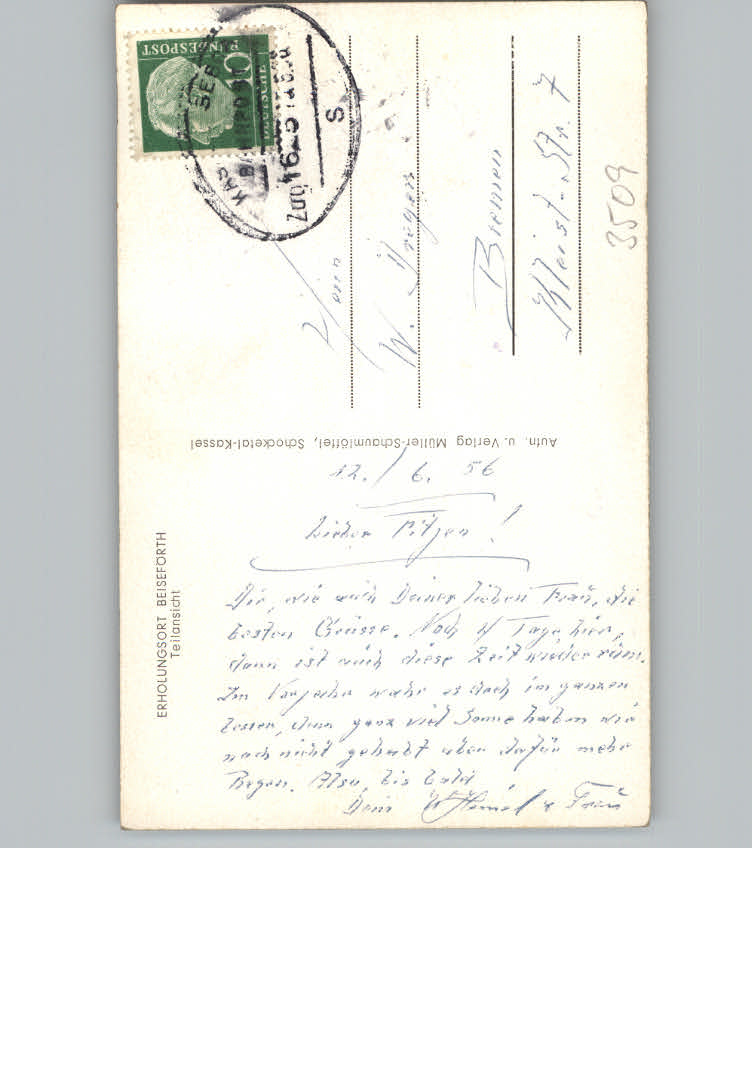 ERHOLUNGSORT BEISEFÖRTH
Teilansicht
12. / 6. 56
Lieber Fitzen !
Dir, wie auch Deiner lieben Frau, die
besten Grüsse. Noch 4 Tage hier,
dann ist auch diese Zeit wieder rüm.
Im Vorjahr wahr es doch im ganzen
besser, denn ganz viel Sonne haben wir
noch nicht gehabt aber dafür mehr
Regen. Also, bis bald
Dein & Frau
Aufn. u. Verlag Müller-Schaumlöffel, Schocketal-Kassel
DEUTSCHE
BUNDESPOST
10
KAS
BEBR
BAHNPOST
Zug
S
W.
Bremen
Kleist-Str. 7
3509